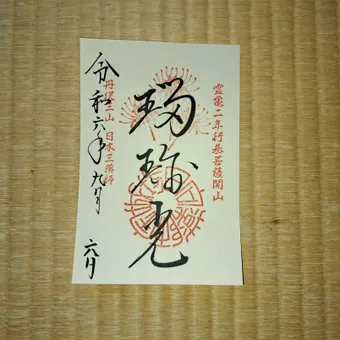 霊亀二年行基菩薩開山
瑠璃光
日本三薬師
令和六年九月六日